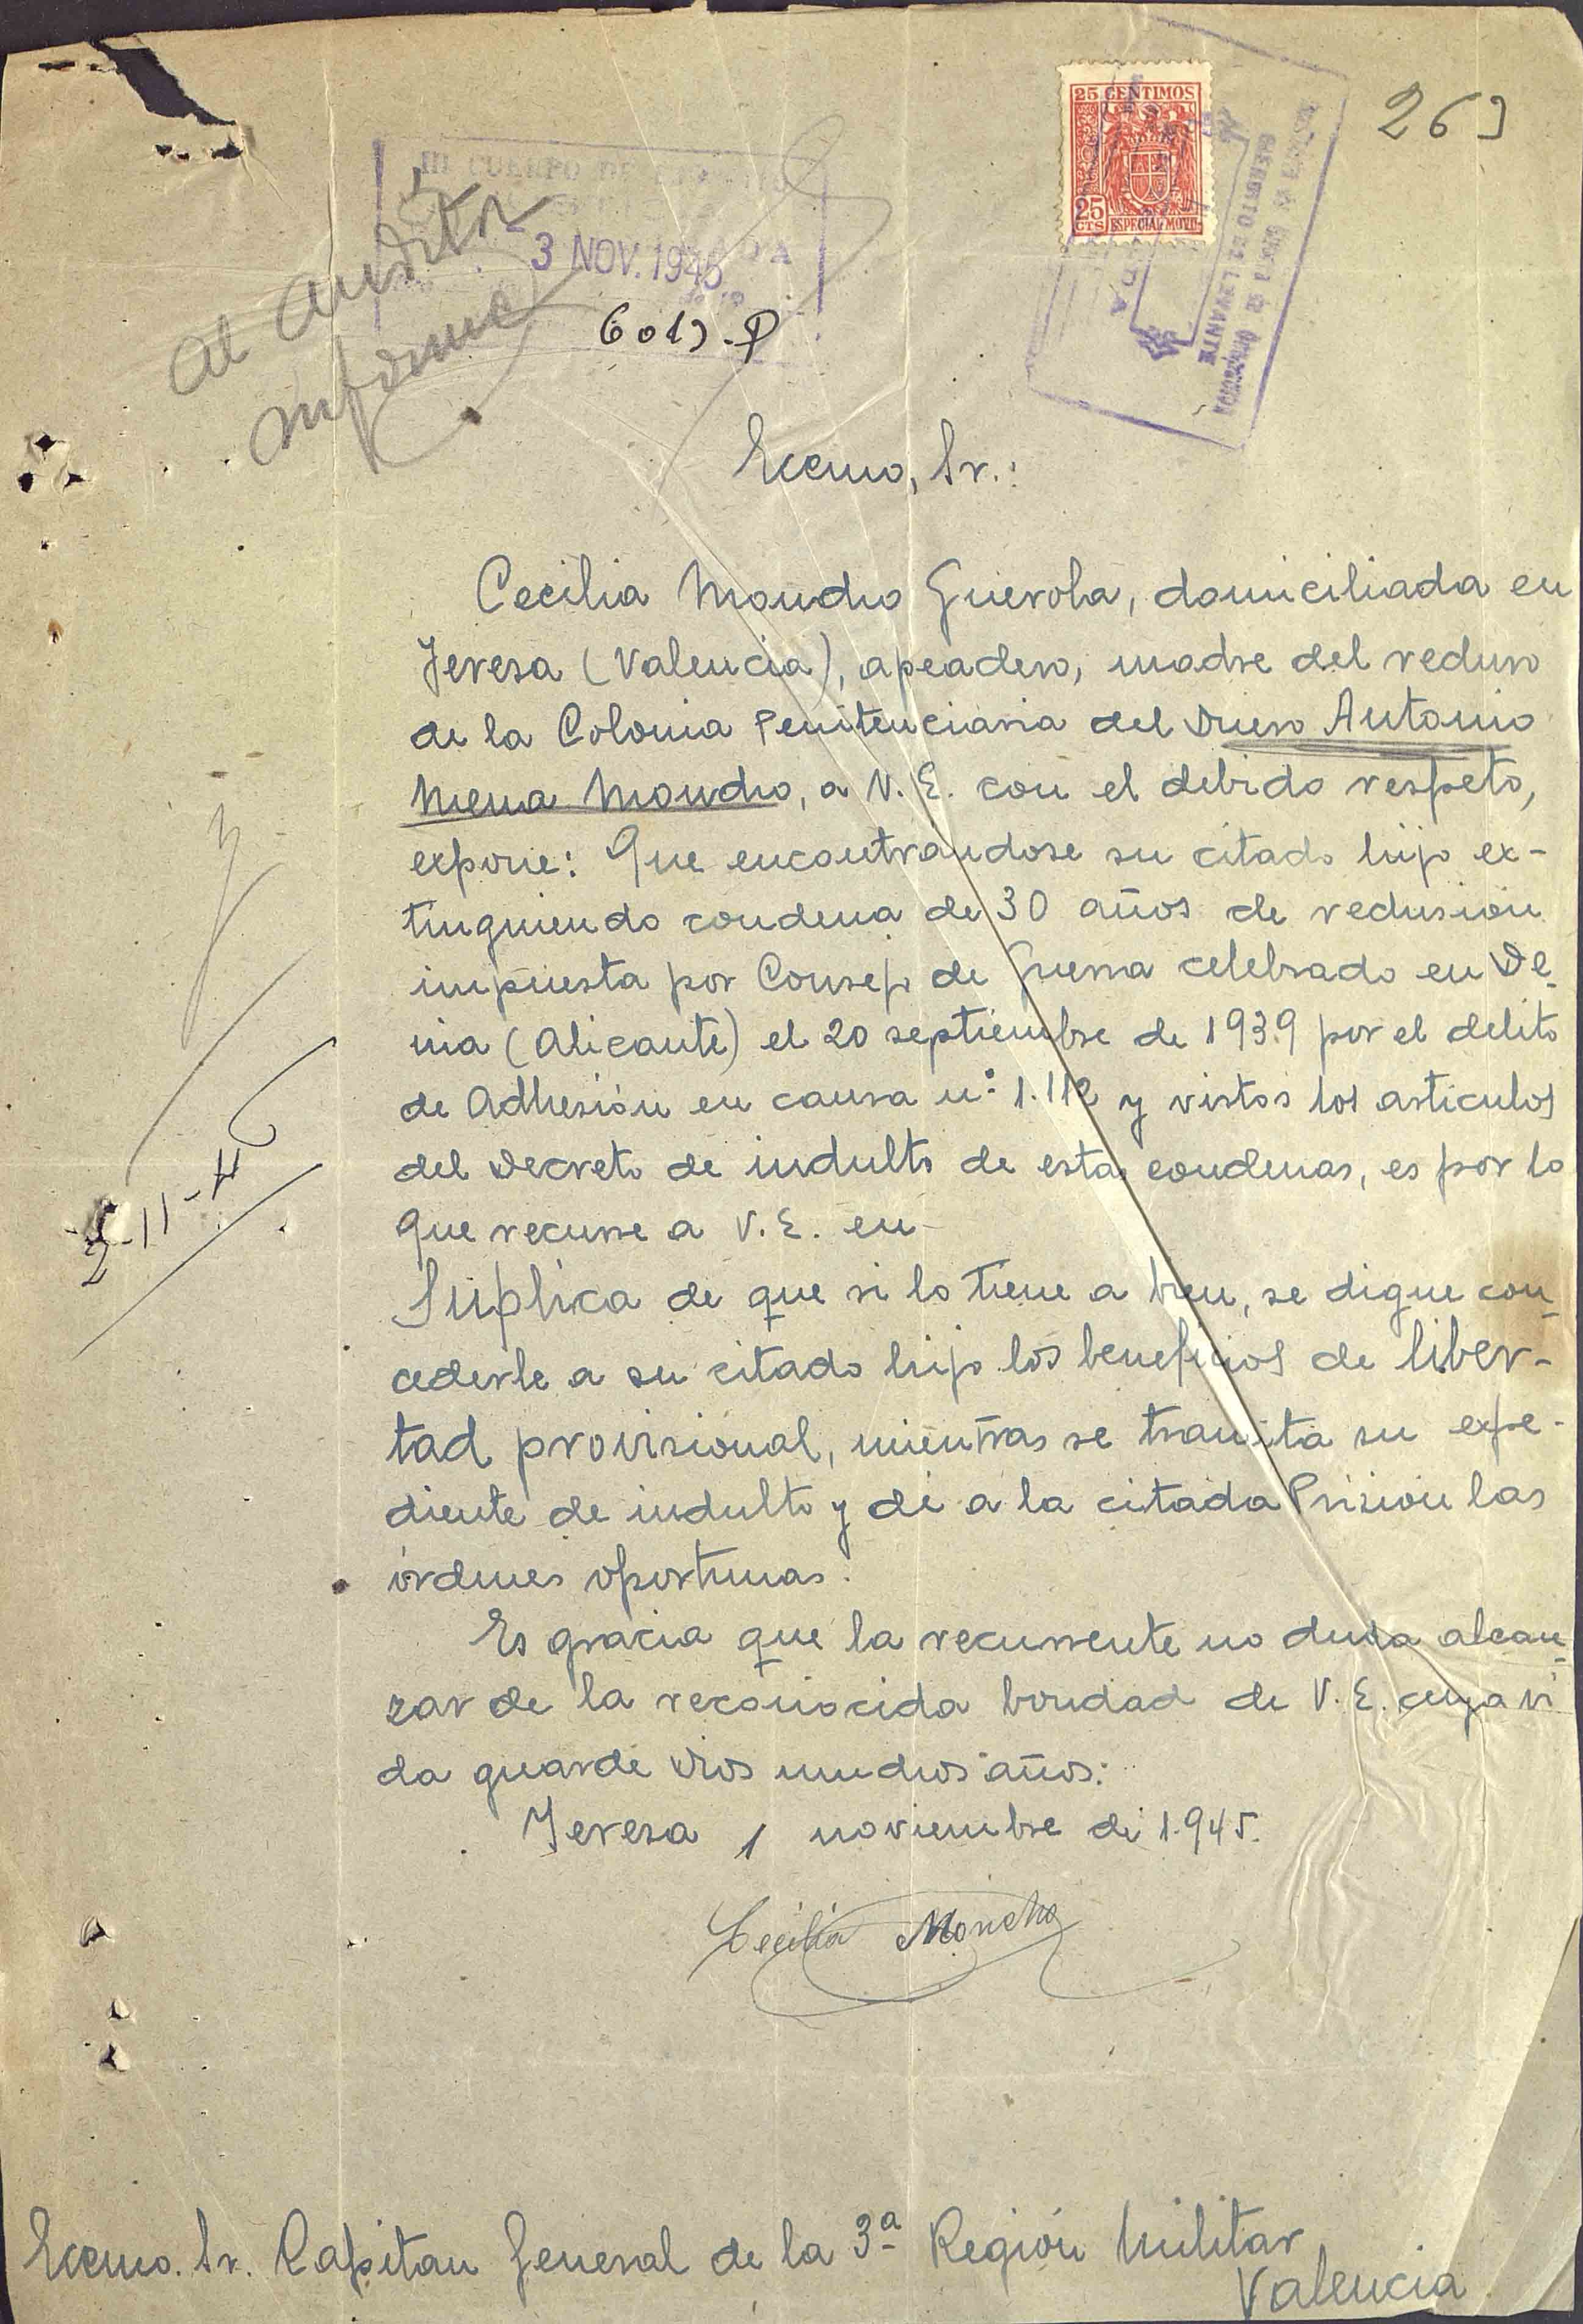 269
25 CENTIMOS
25
CTS ESPECIAL MOVIL
III CUERPO DE EJERCITO
3 NOV. 1945
EJERCITO DE LEVANTE
al auditor
informe
6019-P
Excmo, Sr.:
Cecilia Moncho Guerola, domiciliada en
Jeresa (Valencia), apeadero, madre del recluso
de la Colonia Penitenciaria del Dueso Antonio
Mena Moncho, a V. E. con el debido respeto,
expone: Que encontrandose su citado hijo ex-
tinguiendo condena de 30 años de reclusión
impuesta por Consejo de Guerra celebrado en De-
nia (Alicante) el 20 septiembre de 1939 por el delito
de Adhesión en causa nº 1.112 y vistos los articulos
del Decreto de indulto de estas condenas, es por lo
que recurre a V. E. en
Suplica de que si lo tiene a bien, se digne con-
cederle a su citado hijo los beneficios de liber-
tad provisional, mientras se tramita su expe-
diente de indulto y dé a la citada Prisión las
órdenes oportunas.
Es gracia que la recurrente no duda alcan-
zar de la reconocida bondad de V. E. cuya vi
da guarde Dios muchos años:
Jeresa 1 noviembre de 1.945.
Cecilia Moncho
Excmo. Sr. Capitan General de la 3ª Región Militar
Valencia